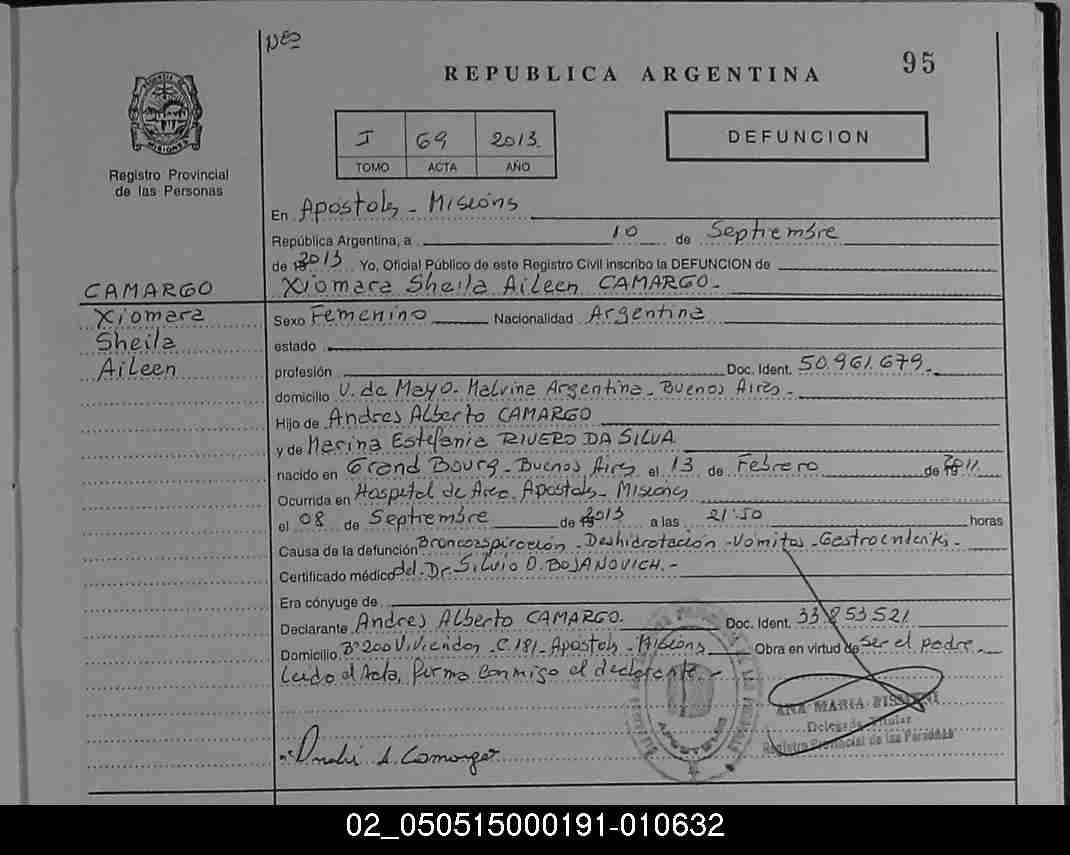 95
REPUBLICA ARGENTINA
I 69 2013.
TOMO ACTA AÑO
DEFUNCION
MISIONES
Registro Provincial
de las Personas
En Apostoles - Misiones
República Argentina, a 10 de Septiembre
de 2013 Yo, Oficial Público de este Registro Civil inscribo la DEFUNCION de
CAMARGO
Xiomara Sheila Aileen CAMARGO.-
Xiomara
Sheila
Aileen
Sexo Femenino Nacionalidad Argentina
estado
profesión Doc. Ident. 50.961.679.-
domicilio U. de Mayo - Malvina Argentina - Buenos Aires -
Hijo de Andres Alberto CAMARGO
y de Marina Estefania RIVERO DA SILVA
nacido en Grand Bourg - Buenos Aires el 13 de Febrero de 2011
Ocurrida en Hospital de Area. Apostoles - Misiones
el 08 de Septiembre de 2013 a las 21:50 horas
Causa de la defunción Broncoaspiración - Deshidratación - Vomitos - Gastroenteritis -
Certificado médico del Dr. Silvio D. BOJANOVICH.-
Era cónyuge de
Declarante Andres Alberto CAMARGO. Doc. Ident. 33.253.521
Domicilio Bº 200 Viviendas - C. 181 - Apostoles - Misiones Obra en virtud de ser el padre.-
Leido el Acta, firma conmigo el declarante.-
APOSTOLES
ANA MARIA
Delegada Titular
Registro Provincial de las Personas
A. Camargo
02_050515000191-010632